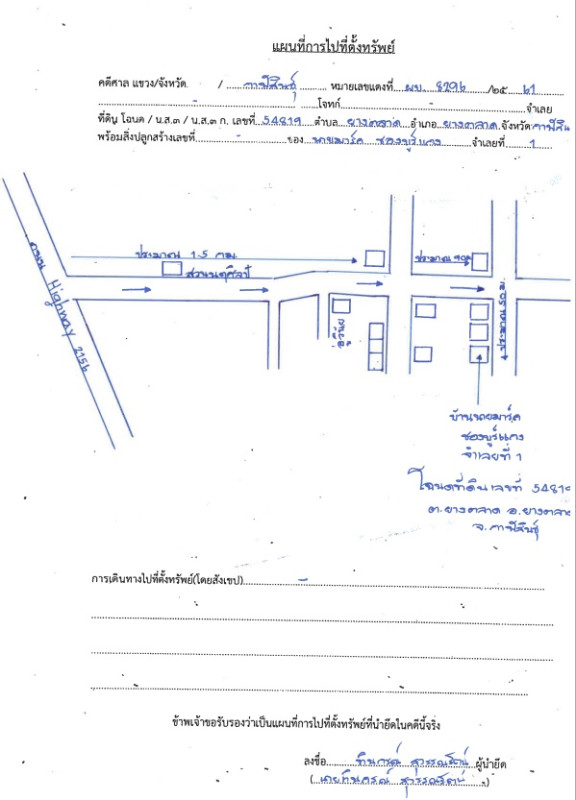 แผนที่การไปที่ตั้งทรัพย์
คดีศาล แขวง/จังหวัด / กาฬสินธุ์ หมายเลขแดงที่ ผบ. 8296 /๒๕ 61
โจทก์ จำเลย
ที่ดิน โฉนด / น.ส.๓ / น.ส.๓ ก. เลขที่ 54819 ตำบล ยางตลาด อำเภอ ยางตลาด จังหวัด กาฬสิน
พร้อมสิ่งปลูกสร้างเลขที่ - ของ นายมาร์ค ของบูร์แกง จำเลยที่ 1
ประมาณ 1.5 กม.
ประมาณ 40ม
สวนนฤศิลป์
ถนน Highway 2156
อู่วินัย
ประมาณ 50 ม.
บ้านนายมาร์ค
ของบูร์แกง
จำเลยที่ 1
โฉนดที่ดินเลขที่ 5481
ต.ยางตลาด อ.ยางตลา
จ.กาฬสินธุ์
การเดินทางไปที่ตั้งทรัพย์(โดยสังเขป)
ข้าพเจ้าขอรับรองว่าเป็นแผนที่การไปที่ตั้งทรัพย์ที่นำยึดในคดีนี้จริง
ลงชื่อ ทินกรณ์ สุวรรณรัตน์ ผู้นำยึด
( นายทินกรณ์ สุวรรณรัตน์ )